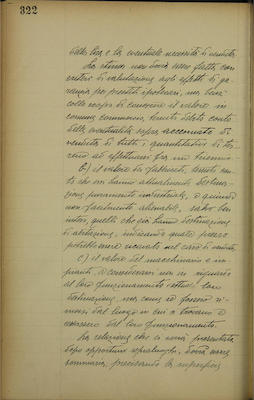 322
della loca e la eventuale necessità di vendita.
La stima non dovrà esser fatta con
criteri di valutazione agli effetti di ga-
ranzia per prestiti ipotecari, ma bensì
collo scopo di conoscere il valore in
comune commercio, tenuto debito conto
della eventualità sopra accennata di
vendita di tutti i quantitativi di ter-
reno ad effettuarsi fra un biennio.
b) il valore dei fabbricati, tenuto con-
to che essi hanno attualmente destina-
zione puramente industriale, e quindi
non facilmente alienabili, salvo ben
inteso, quelli che già hanno destinazione
di abitazione, indicando quale prezzo
potrebbe venire incassato nel caso di vendita.
c) il valore del macchinario e im-
pianti, da considerarsi non in riguardo
al loro funzionamento ed alla loro
destinazione, ma come se fossero ri-
mossi dal luogo in cui si trovano e
cessassero dal loro funzionamento.
La relazione che ci verrà presentata
dopo opportuno sopraluogo, dovrà essere
sommaria, precisando la superficie